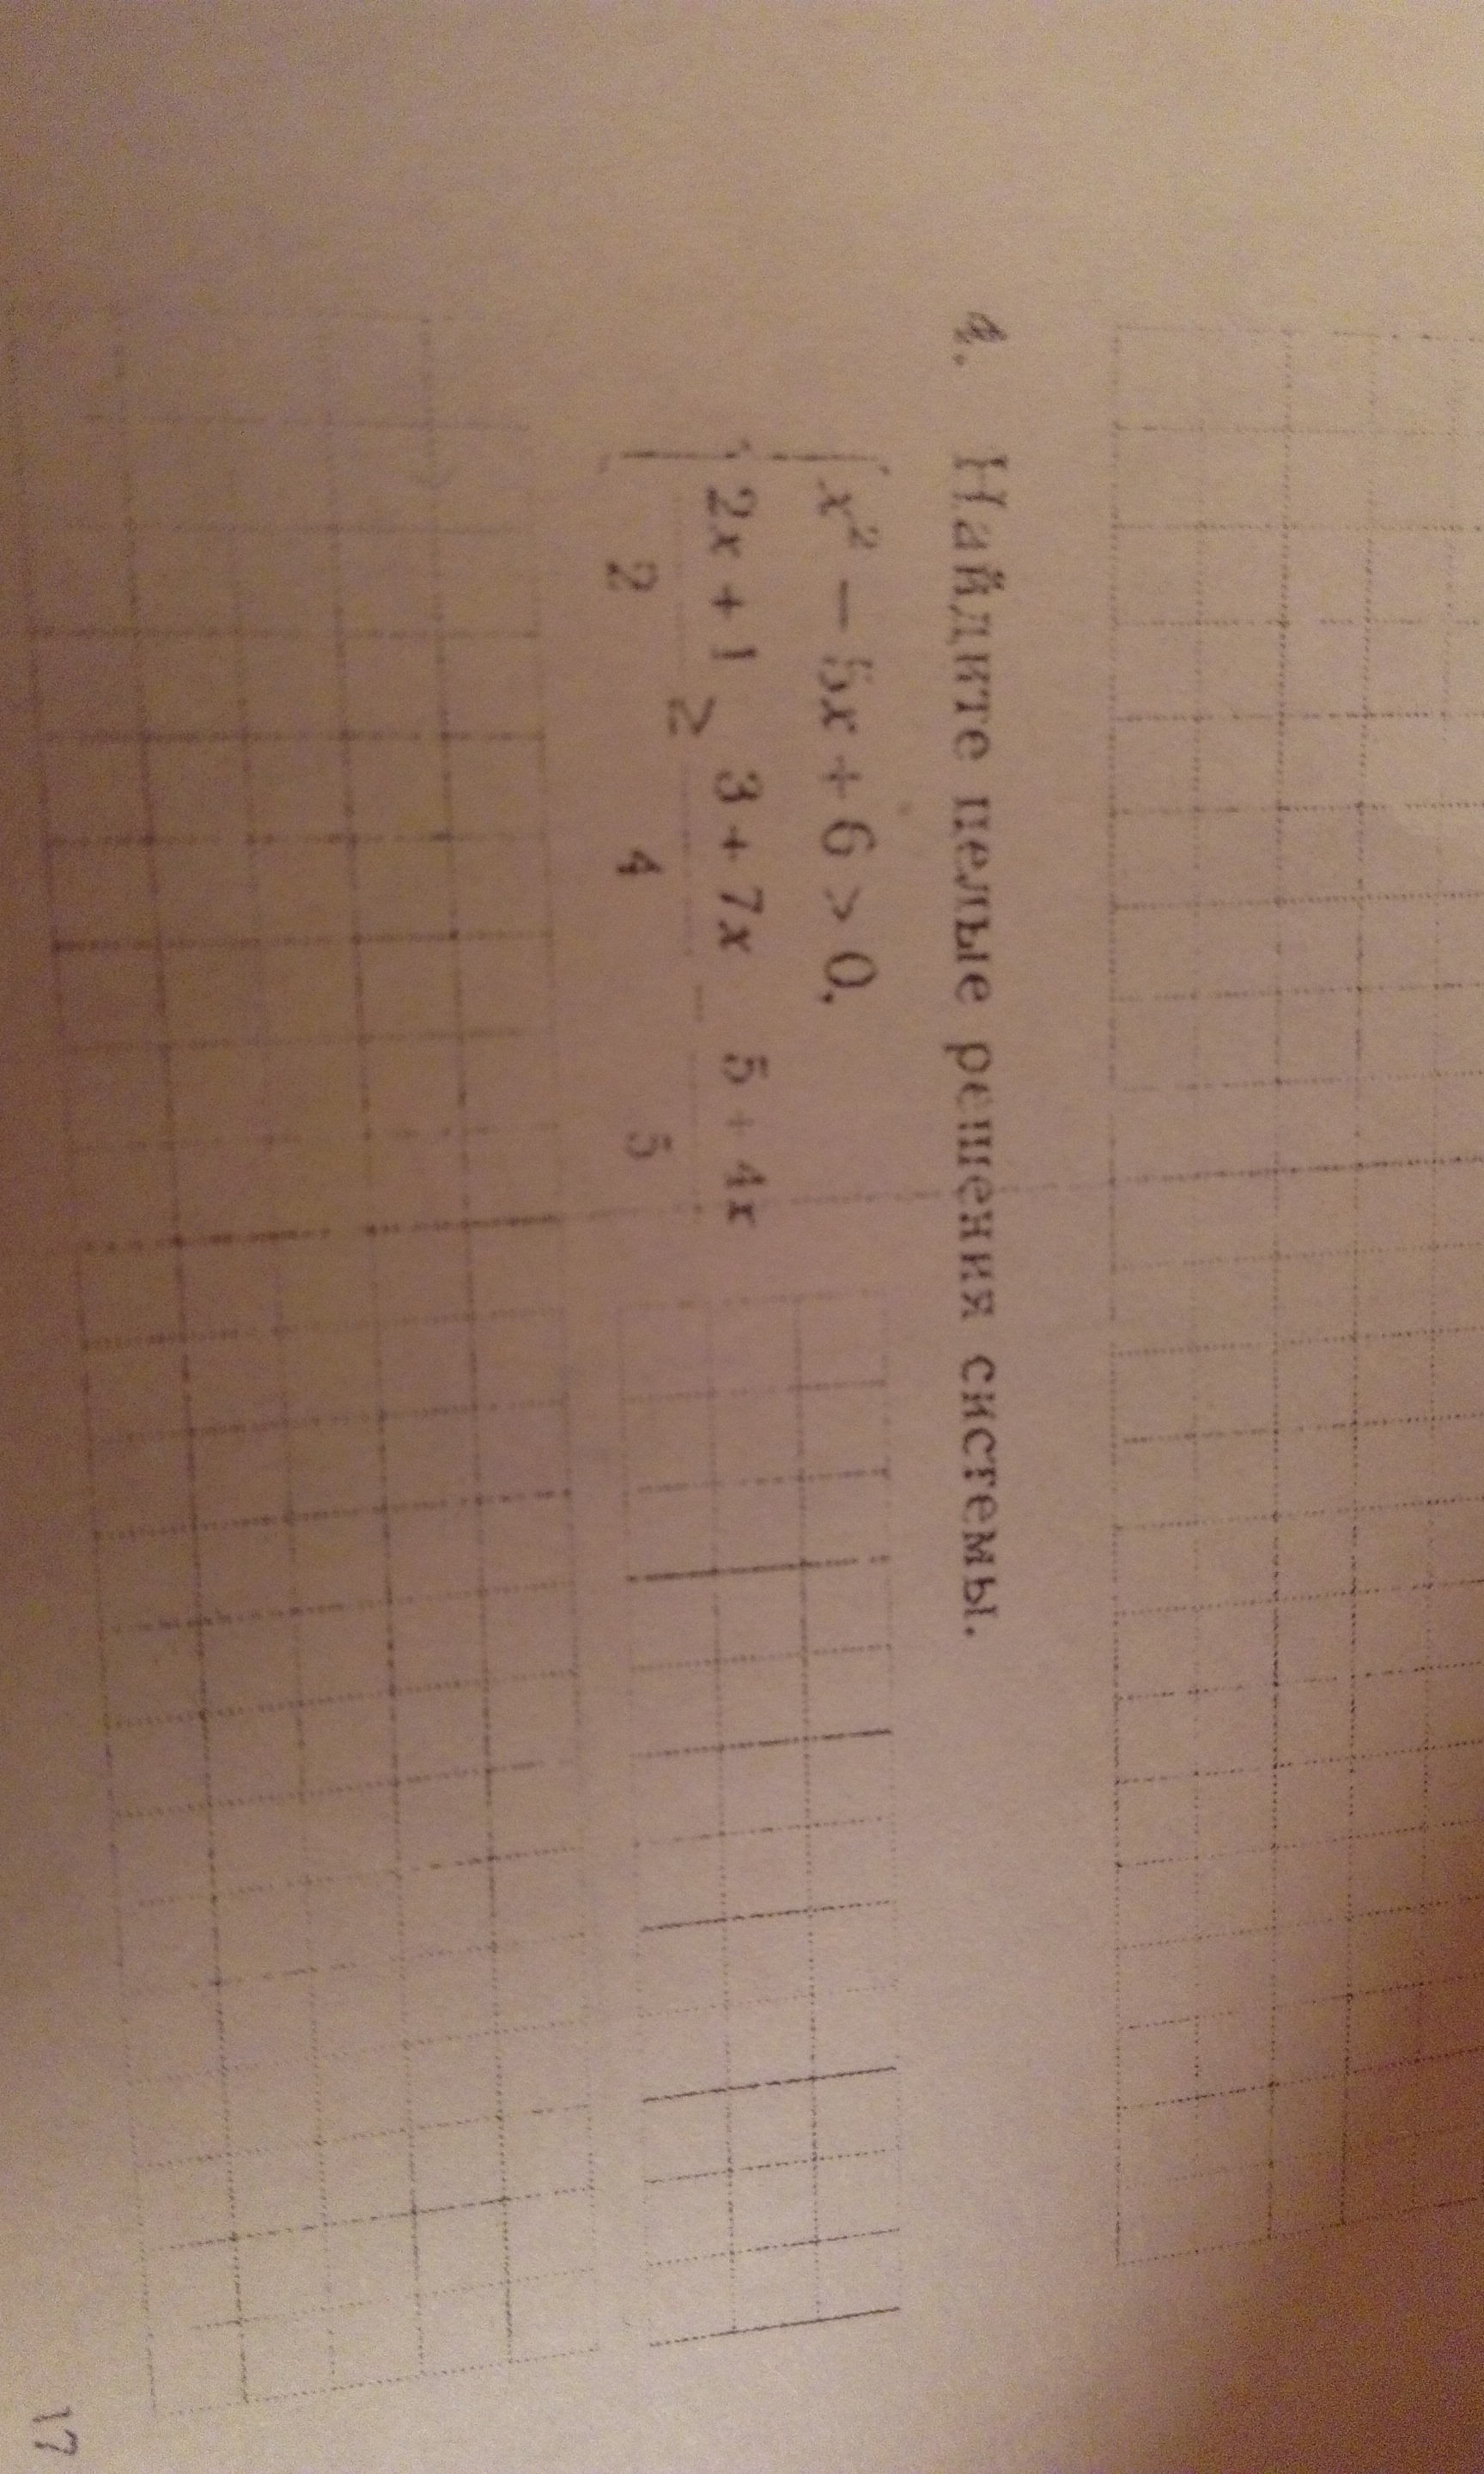 4. Найдите целые решения системы.
x² − 5x + 6 > 0,
2x + 1 / 2 ≥ 3 + 7x / 4 − 5 + 4x / 5
17